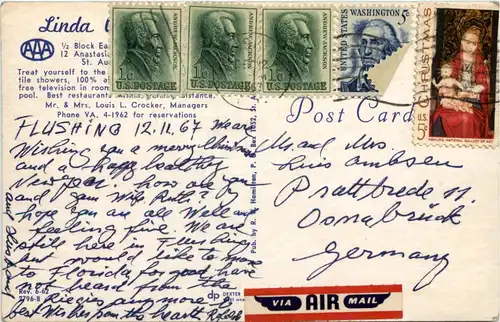 Linda
AAA
½ Block Ea
12 Anastasia
St. Au
Treat yourself to the
tile showers, 100% a
free television in rooms
pool. Best restaurant distance.
Mr. & Mrs. Louis L. Crocker, Managers
Phone VA. 4-1962 for reservations
1¢ ANDREW JACKSON U.S. POSTAGE
1¢ ANDREW JACKSON U.S. POSTAGE
1¢ ANDREW JACKSON U.S. POSTAGE
WASHINGTON 5¢
UNITED STATES
CHRISTMAS
U.S.
MEMLING, NATIONAL GALLERY OF ART
Post Card
FLUSHING 12.11.67 We are
Wishing you a merry Christmas
and a happy healthy
New Year. how are you
and your Wife Ruth? I
hope you are all Well and
feeling fine. We are
still here in Flushing
but would like to move
to Florida for good have
not heard from the
any more
best Wishes from the hearth
Mr and Mrs.
Osnabrück
Germany
Pub. by R.
Rev. 6-62
2796-B
dp DEXTER
VIA AIR MAIL